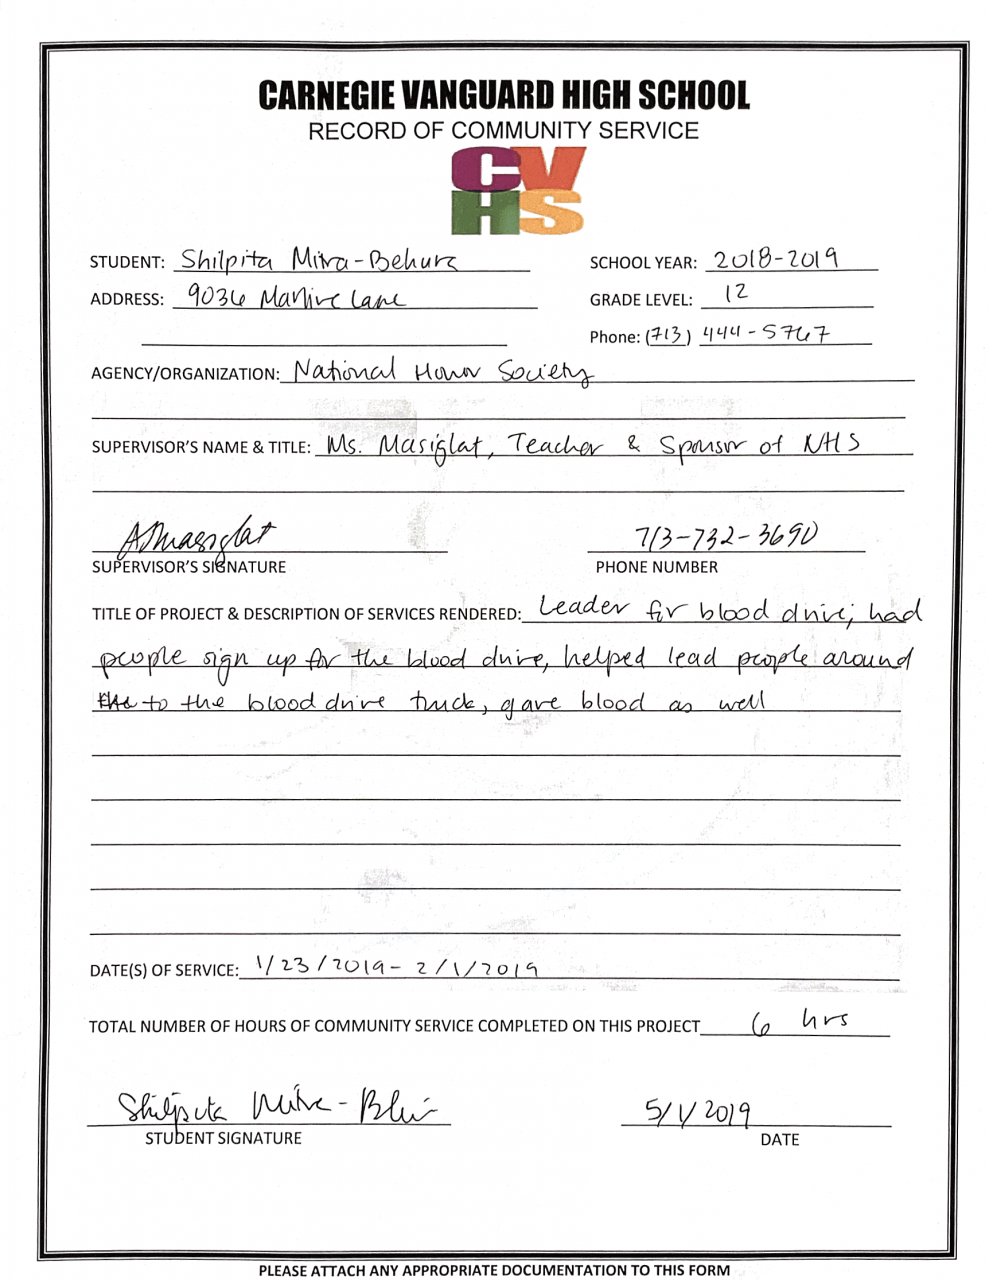 CARNEGIE VANGUARD HIGH SCHOOL
RECORD OF COMMUNITY SERVICE
CV
HS
STUDENT: Shilpita Mitra-Behura
SCHOOL YEAR: 2018-2019
ADDRESS: 9036 Lane
GRADE LEVEL: 12
Phone: (713) 444-5767
AGENCY/ORGANIZATION: National Honor Society
SUPERVISOR'S NAME & TITLE: Ms. Masiglat, Teacher & Sponsor of NHS
AMasiglat 713-732-3690
SUPERVISOR'S SIGNATURE PHONE NUMBER
TITLE OF PROJECT & DESCRIPTION OF SERVICES RENDERED: Leader for blood drive; had
people sign up for the blood drive, helped lead people around
to the blood drive truck, gave blood as well
DATE(S) OF SERVICE: 1/23/2019- 2/1/2019
TOTAL NUMBER OF HOURS OF COMMUNITY SERVICE COMPLETED ON THIS PROJECT 6 hrs
Shilpita Mitra- 5/1/2019
STUDENT SIGNATURE DATE
PLEASE ATTACH ANY APPROPRIATE DOCUMENTATION TO THIS FORM